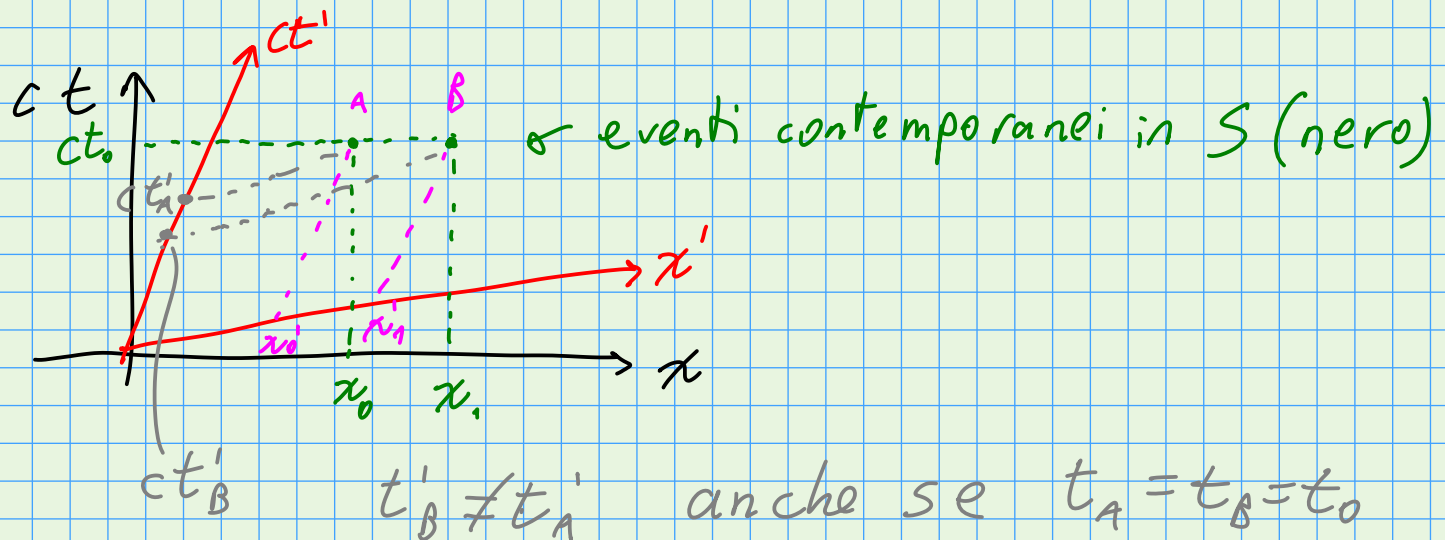 ct'
A B
ct
ct₀
eventi contemporanei in S (nero)
ct'_A
x'
x'₀ x'₁
x
x₀ x₁
ct'_B
t'_B ≠ t'_A anche se t_A = t_B = t₀